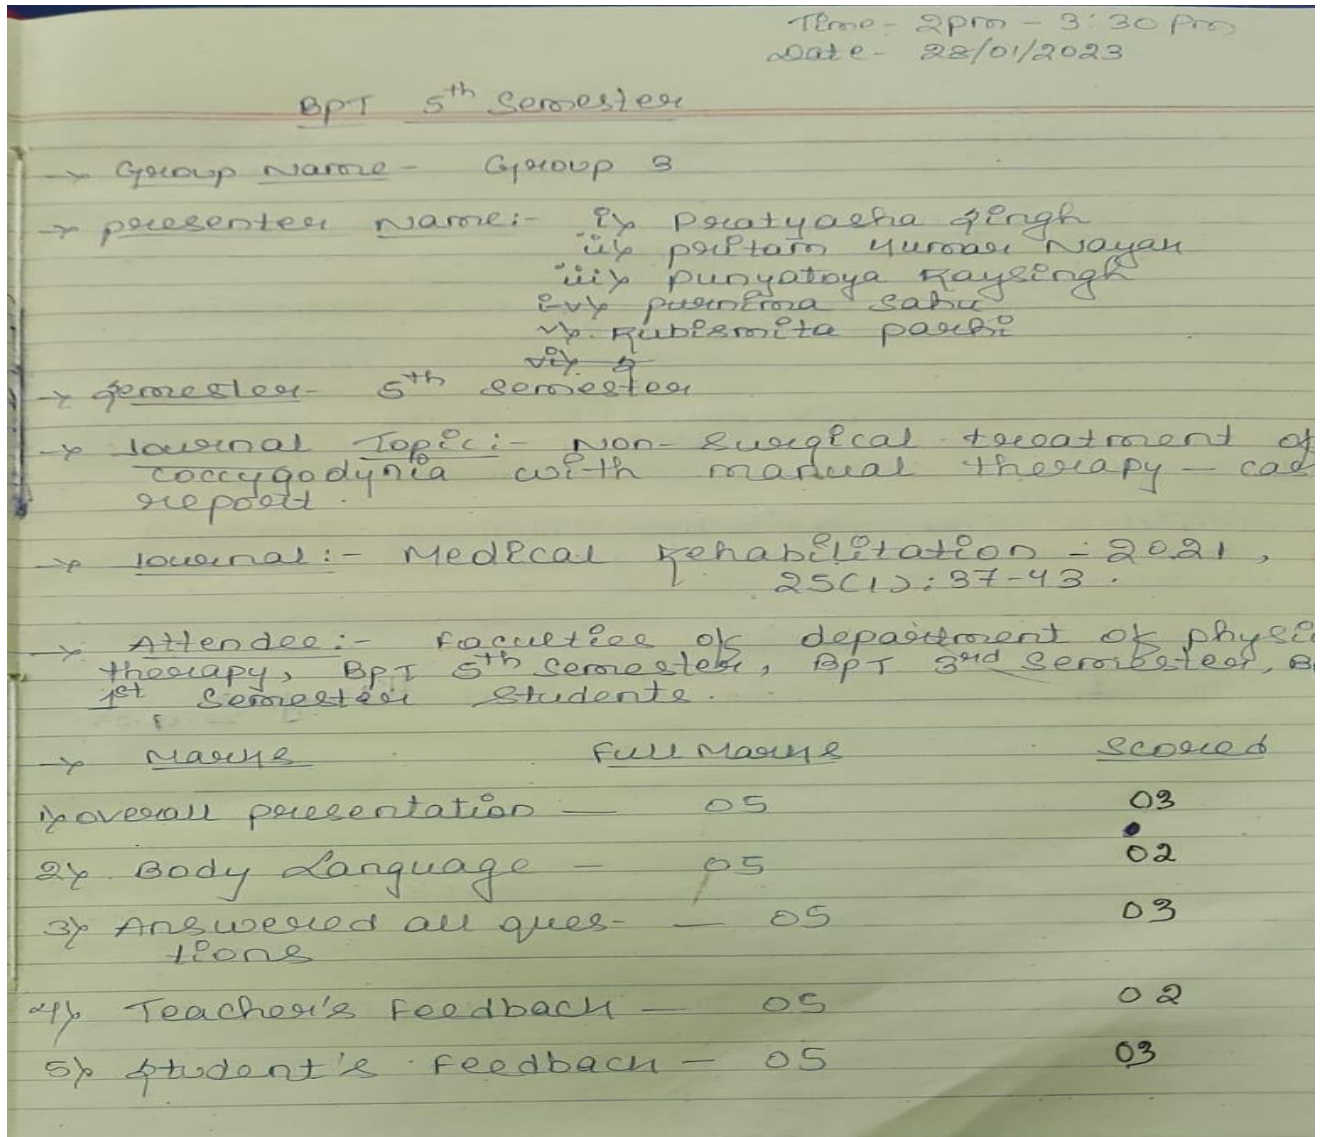 Time - 2pm - 3:30 Pm
Date - 28/01/2023
BPT 5th Semester
→ Group Name - Group 3
→ presenter Name:- i) Pratyasha Singh
ii) pritam Kumar Nayak
iii) punyatoya Raysingh
iv) purnima Sahu
v) Rubismita parhi
vi)
→ Semester - 5th Semester
→ Journal Topic:- Non-Surgical treatment of
coccygodynia with manual therapy - cas
report.
→ Journal:- Medical Rehabilitation - 2021,
25(1): 37-43.
→ Attendee:- Faculties of department of physi
therapy, BPT 5th Semester, BPT 3rd Semester, B
1st Semester Students.
→ Marks Full Marks Scored
1) overall presentation — 05 03
2) Body Language — 05 02
3) Answered all ques- — 05 03
tions
4) Teacher's Feedback — 05 02
5) Student's Feedback — 05 03